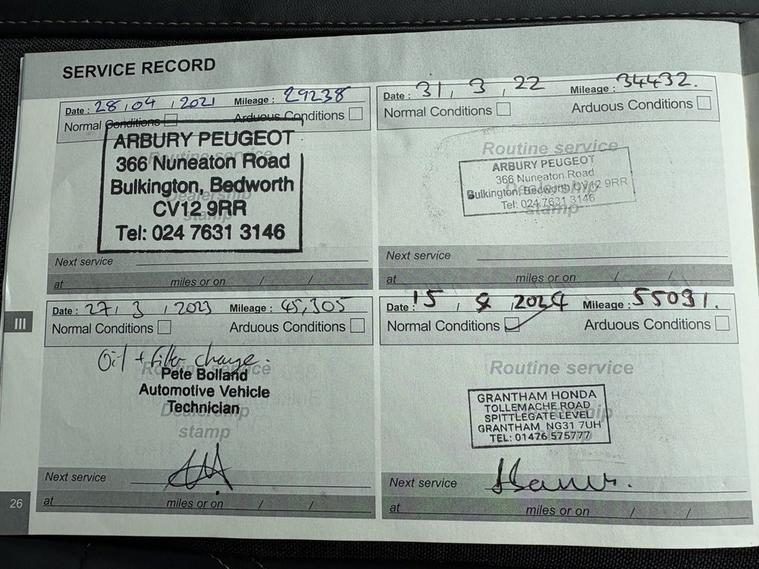 SERVICE RECORD
Date : 28 , 04 , 2021 Mileage : 29238
Normal Conditions Arduous Conditions
Routine service
Dealership
stamp
ARBURY PEUGEOT
366 Nuneaton Road
Bulkington, Bedworth
CV12 9RR
Tel: 024 7631 3146
Next service
at miles or on / /
Date : 31 , 3 , 22 Mileage : 34432.
Normal Conditions Arduous Conditions
Routine service
Dealership
stamp
ARBURY PEUGEOT
366 Nuneaton Road
Bulkington, Bedworth CV12 9RR
Tel: 024 7631 3146
Next service
at miles or on / /
Date : 27 , 3 , 2023 Mileage : 45,305
Normal Conditions Arduous Conditions
Oil + filter change.
Routine service
Dealership
stamp
Pete Bolland
Automotive Vehicle
Technician
Next service
at miles or on / /
Date : 15 / 8 2024 Mileage : 55091.
Normal Conditions Arduous Conditions
Routine service
Dealership
stamp
GRANTHAM HONDA
TOLLEMACHE ROAD
SPITTLEGATE LEVEL
GRANTHAM NG31 7UH
TEL: 01476 575777
Next service
at miles or on / /
III
26